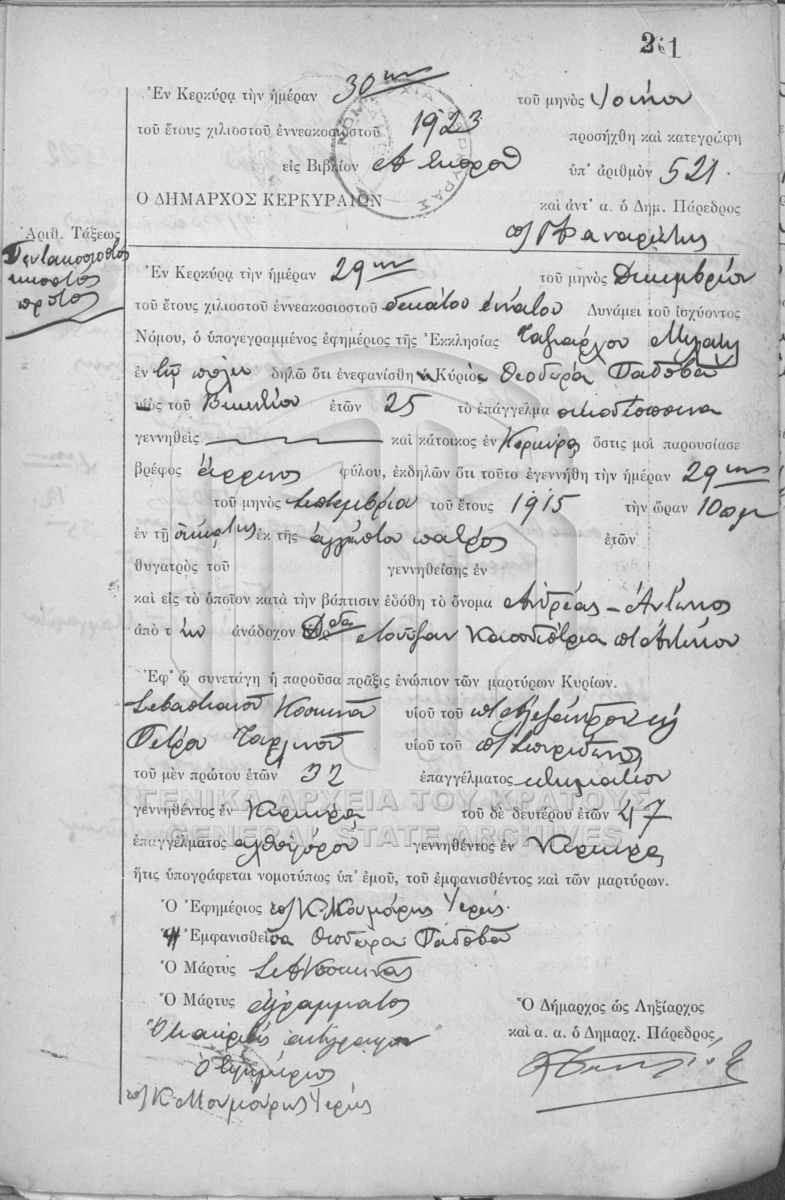 261
Ἐν Κερκύρᾳ τὴν ἡμέραν 30ην τοῦ μηνὸς
τοῦ ἔτους χιλιοστοῦ ἐννεακοσιοστοῦ 1923 προσήχθη καὶ κατεγράφη
εἰς Βιβλίον ὑπ' ἀριθμὸν 521.
Ο ΔΗΜΑΡΧΟΣ ΚΕΡΚΥΡΑΙΩΝ καὶ ἀντ' α. ὁ Δημ. Πάρεδρος
Ἀριθ. Τάξεως
Πεντακοσιοστὸς
εικοστος
πρῶτος
Ἐν Κερκύρᾳ τὴν ἡμέραν 29ην τοῦ μηνὸς Δεκεμβρίου
τοῦ ἔτους χιλιοστοῦ ἐννεακοσιοστοῦ δεκάτου ἐνάτου Δυνάμει τοῦ ἰσχύοντος
Νόμου, ὁ ὑπογεγραμμένος ἐφημέριος τῆς Ἐκκλησίας Ταξιάρχου
ἐν τῇ πόλει δηλῶ ὅτι ἐνεφανίσθη ἡ Κύριος Θεοδώρα Παδοβᾶ
υἱὸς τοῦ Βικεντίου ἐτῶν 25 τὸ ἐπάγγελμα οικοδέσποινα
γεννηθεὶς καὶ κάτοικος ἐν Κερκύρᾳ ὅστις μοὶ παρουσίασε
βρέφος ἄρρενος φύλου, ἐκδηλῶν ὅτι τοῦτο ἐγεννήθη τὴν ἡμέραν 29ην
τοῦ μηνὸς Σεπτεμβρίου τοῦ ἔτους 1915 τὴν ὥραν 10 πμ
ἐν τῇ ἐκ τῆς πατρὸς ἐτῶν
θυγατρὸς τοῦ γεννηθείσης ἐν
καὶ εἰς τὸ ὁποῖον κατὰ τὴν βάπτισιν ἐδόθη τὸ ὄνομα Ἀνδρέας - Ἀντώνιος
ἀπὸ τ ἀνάδοχον Καποδίστρια
Ἐφ' ᾧ συνετάγη ἡ παροῦσα πρᾶξις ἐνώπιον τῶν μαρτύρων Κυρίων.
Σεβαστιανοῦ Κοσκινᾶ υἱοῦ τοῦ Ἀλεξάνδρου καὶ
Πέτρου υἱοῦ τοῦ Σπυρίδωνος
τοῦ μὲν πρώτου ἐτῶν 32 ἐπαγγέλματος κτηματίου
γεννηθέντος ἐν Κερκύρᾳ τοῦ δὲ δευτέρου ἐτῶν 47
ἐπαγγέλματος ἀχθοφόρου γεννηθέντος ἐν Κερκύρᾳ
ἥτις ὑπογράφεται νομοτύπως ὑπ' ἐμοῦ, τοῦ ἐμφανισθέντος καὶ τῶν μαρτύρων.
Ὁ Ἐφημέριος Κ. Μουμούρης Ἱερεύς.
Ἡ Ἐμφανισθεῖσα Θεοδώρα Παδοβᾶ
Ὁ Μάρτυς Κοσκινᾶς
Ὁ Μάρτυς ἀγράμματος
Ὁ Δήμαρχος ὡς Ληξίαρχος
καὶ α. α. ὁ Δημαρχ. Πάρεδρος
ἀκριβὲς ἀντίγραφον
ὁ Ἐφημέριος
Κ. Μουμούρης Ἱερεύς
ΓΕΝΙΚΑ ΑΡΧΕΙΑ ΤΟΥ ΚΡΑΤΟΥΣ
GENERAL STATE ARCHIVES